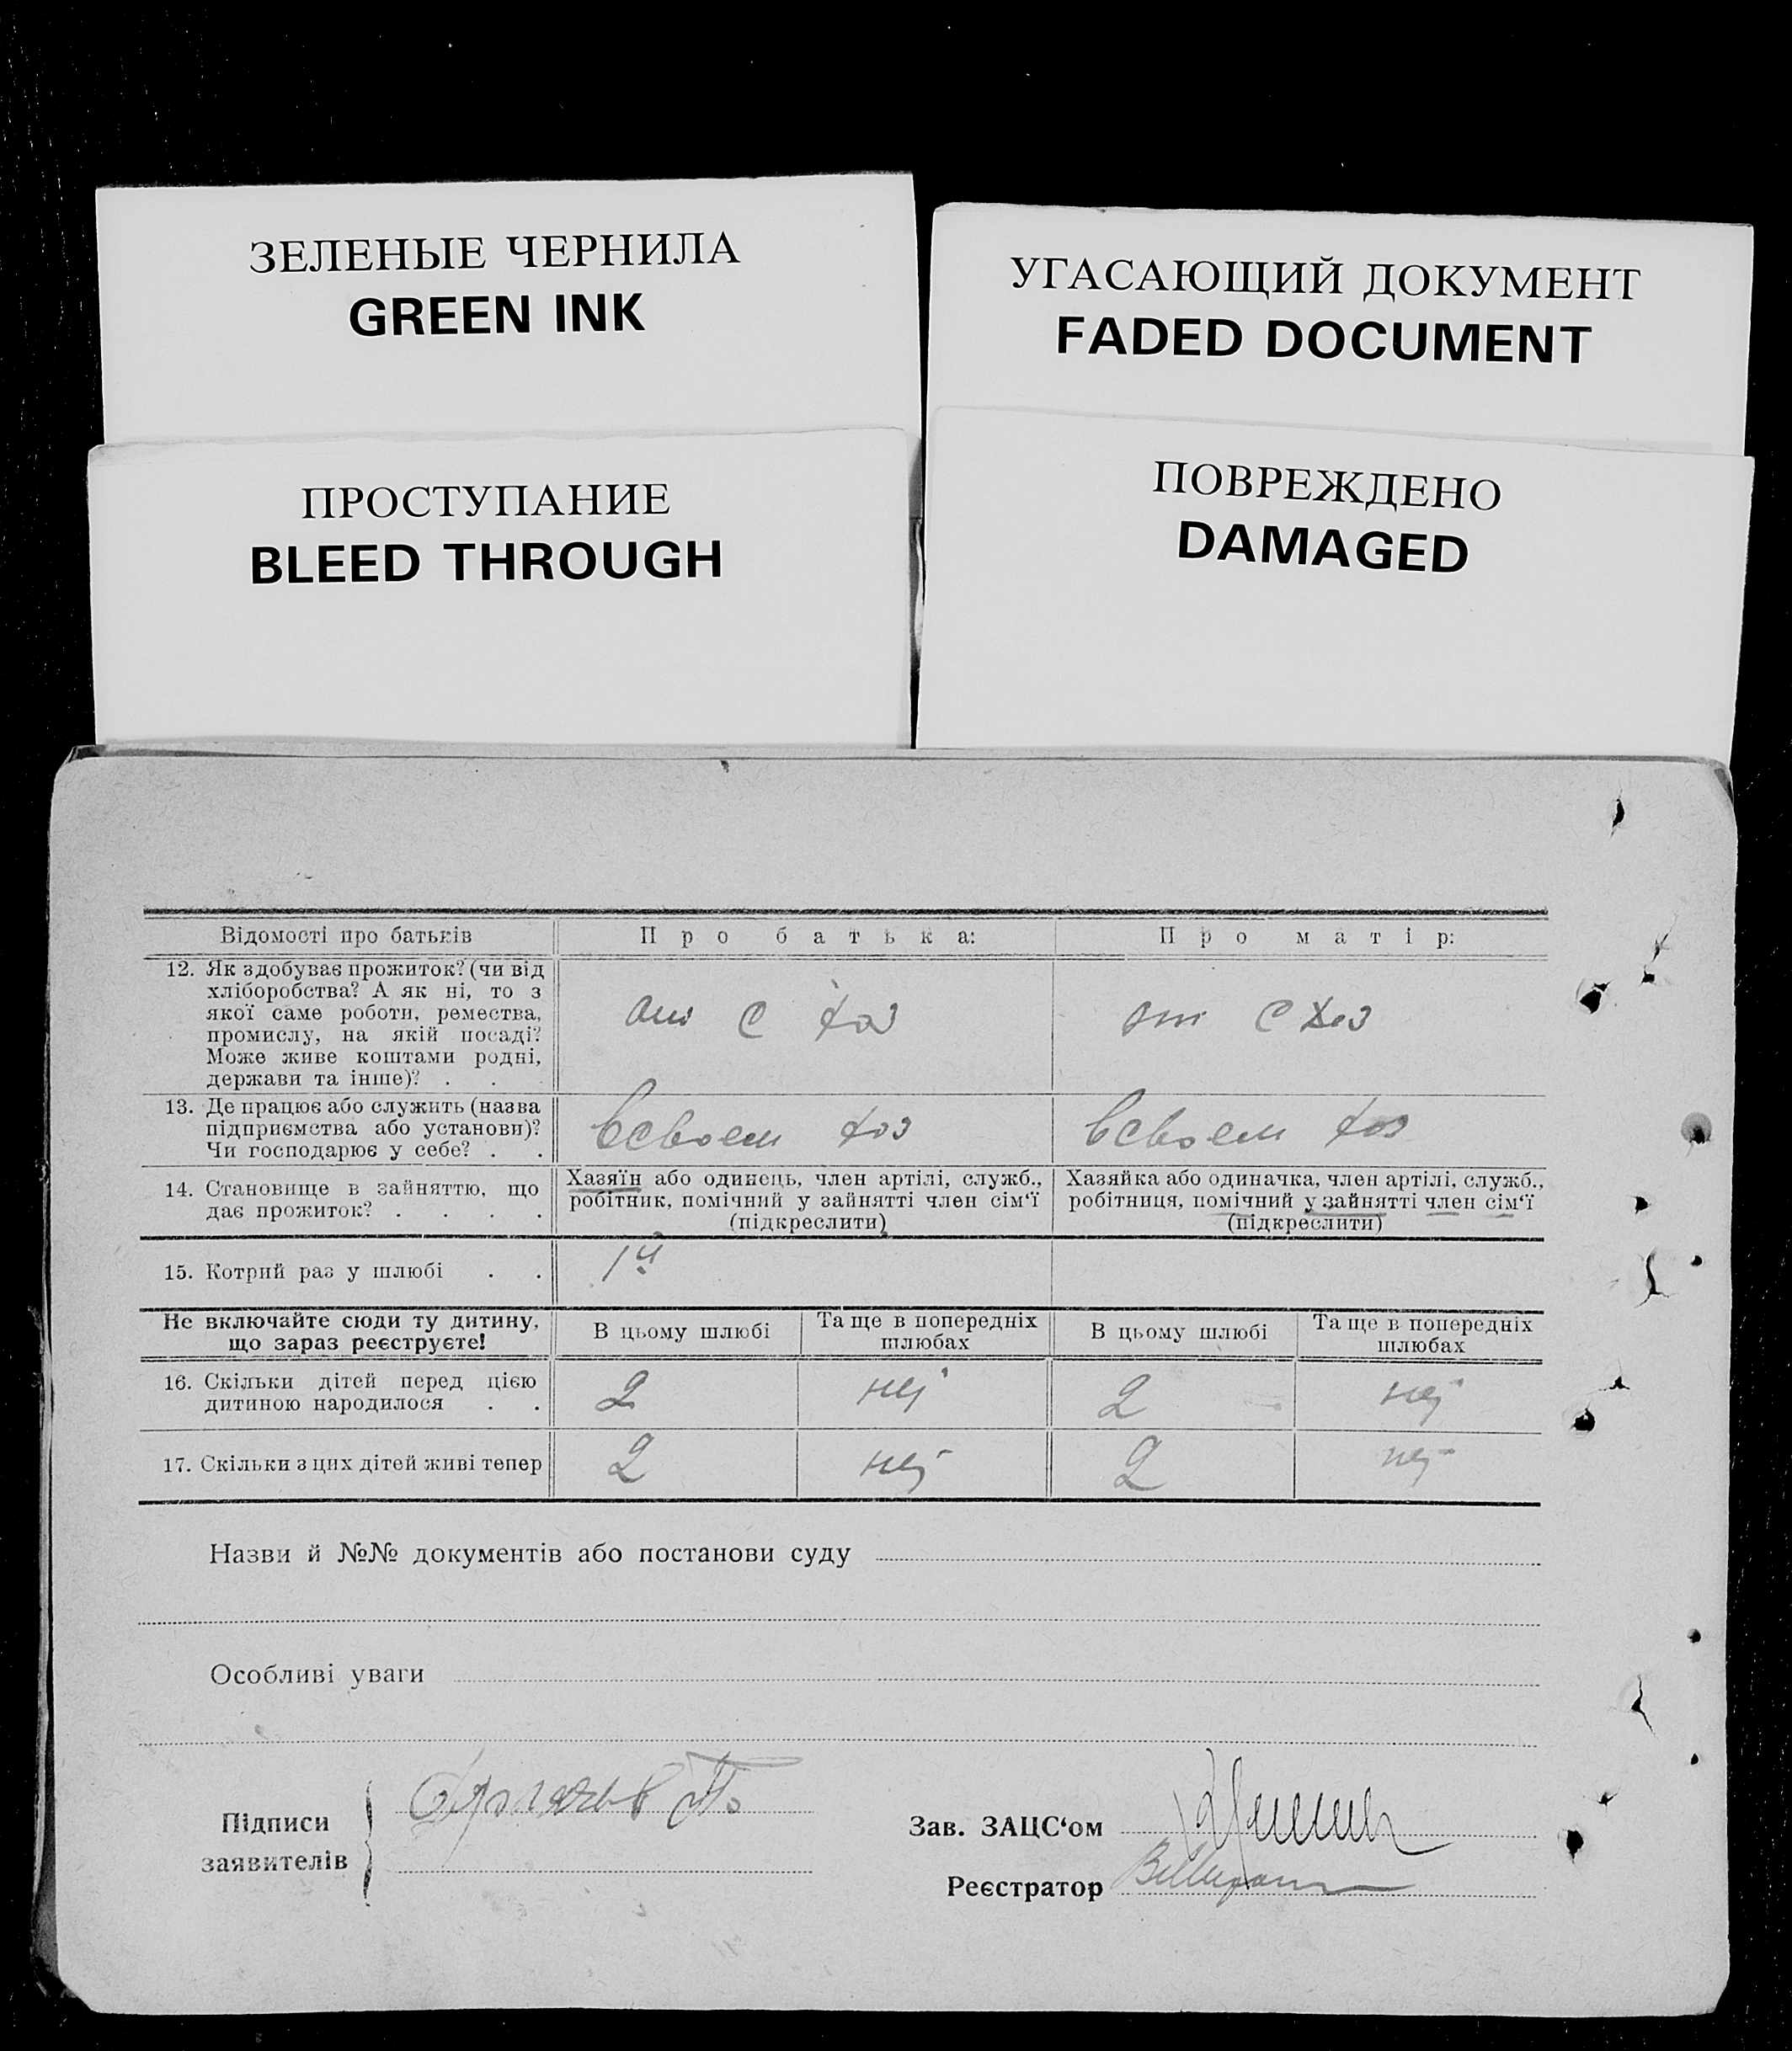 ЗЕЛЕНЫЕ ЧЕРНИЛА
GREEN INK
УГАСАЮЩИЙ ДОКУМЕНТ
FADED DOCUMENT
ПРОСТУПАНИЕ
BLEED THROUGH
ПОВРЕЖДЕНО
DAMAGED
Відомості про батьків
Про батька:
Про матір:
12. Як здобуває прожиток? (чи від
хліборобства? А як ні, то з
якої саме роботи, ремества,
промислу, на якій посаді?
Може живе коштами родні,
держави та інше)? . .
от с хоз
от с хоз
13. Де працює або служить (назва
підприємства або установи)?
Чи господарює у себе? . .
всвоем хоз
всвоем хоз
14. Становище в зайняттю, що
дає прожиток? . . . .
Хазяїн або одинець, член артілі, служб.,
робітник, помічний у зайнятті член сім‘ї
(підкреслити)
Хазяйка або одиначка, член артілі, служб.,
робітниця, помічний у зайнятті член сім‘ї
(підкреслити)
15. Котрий раз у шлюбі . .
1й
Не включайте сюди ту дитину,
що зараз реєструєте!
В цьому шлюбі
Та ще в попередніх
шлюбах
В цьому шлюбі
Та ще в попередніх
шлюбах
16. Скільки дітей перед цією
дитиною народилося . .
2
2
17. Скільки з цих дітей живі тепер
2
2
Назви й №№ документів або постанови суду
Особливі уваги
Підписи
заявителів
Зав. ЗАЦС‘ом
Реєстратор